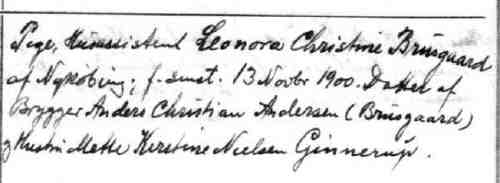 Pige, Husassistent Leonora Christine Brusgaard
af Nykøbing; f. smst. 13 Novbr 1900. Datter af
Brygger Anders Christian Andersen (Brusgaard)
og Hustru Mette Kirstine Nielsen Ginnerup.